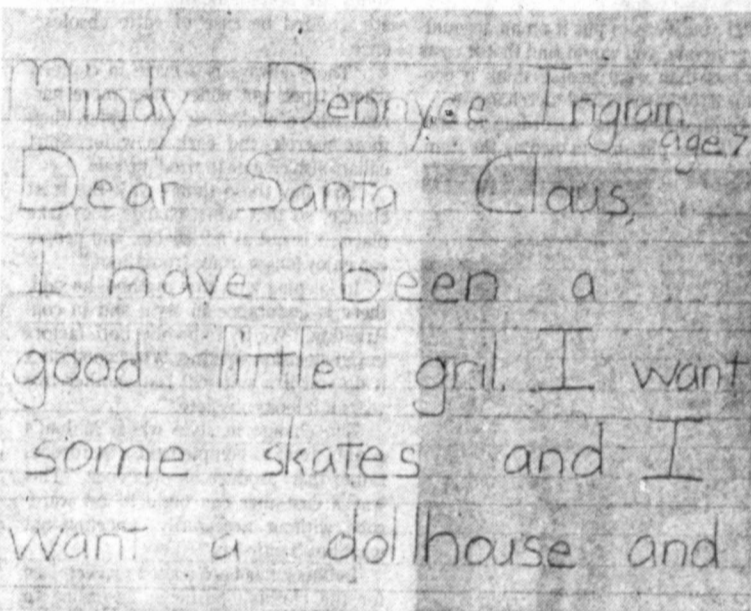 Mindy Dennyce Ingram
age 7
Dear Santa Claus,
I have been a
good little gril. I want
some skates and I
want a dollhouse and